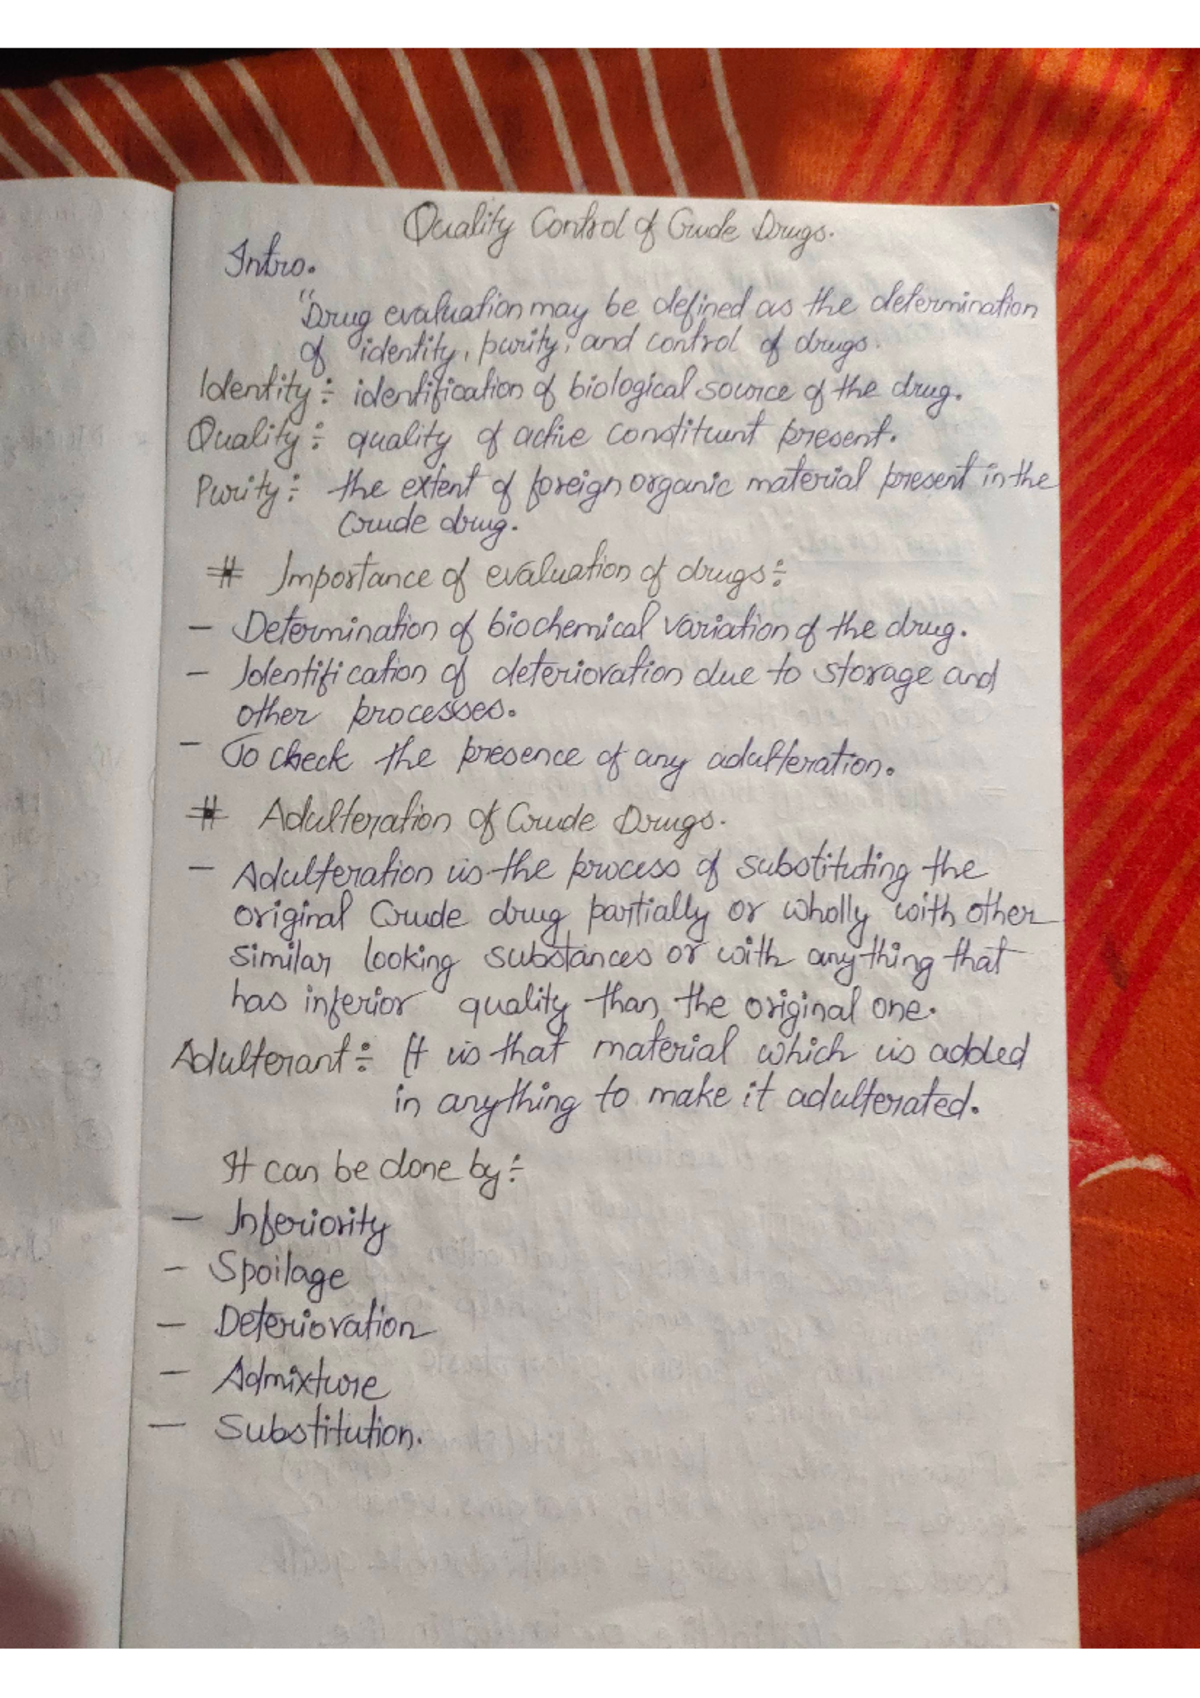 Quality Control of Crude Drugs.
Intro.
"Drug evaluation may be defined as the determination
of identity, purity, and control of drugs.
Identity:- identification of biological source of the drug.
Quality:- quality of active constituent present.
Purity:- the extent of foreign organic material present in the
Crude drug.
# Importance of evaluation of drugs:-
- Determination of biochemical variation of the drug.
- Identification of deterioration due to storage and
other processes.
- To check the presence of any adulteration.
# Adulteration of Crude Drugs.
- Adulteration is the process of substituting the
original Crude drug partially or wholly with other
similar looking substances or with anything that
has inferior quality than the original one.
Adulterant:- It is that material which is added
in anything to make it adulterated.
It can be done by:-
- Inferiority
- Spoilage
- Deterioration
- Admixture
- Substitution.